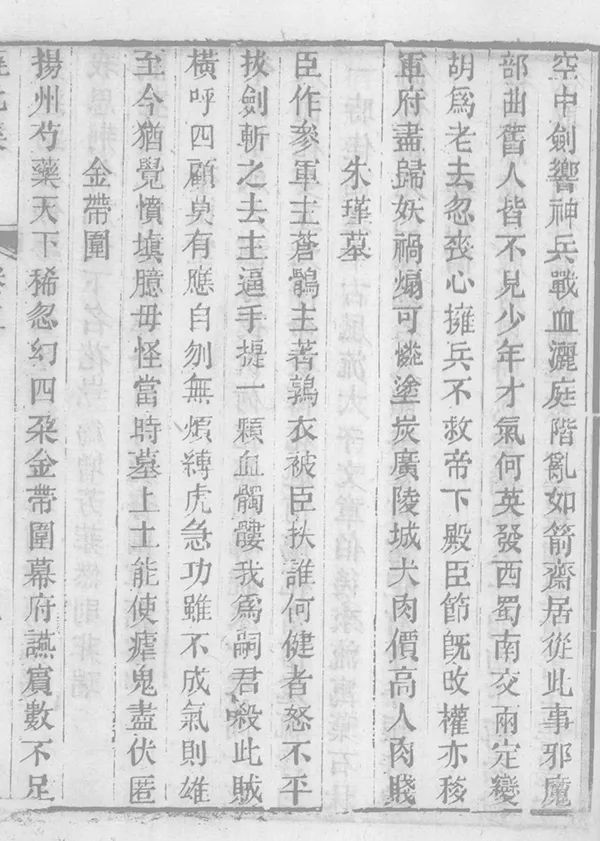 空中劍響神兵戰血灑庭階亂如箭齋居從此事邪魔
部曲舊人皆不見少年才氣何英發西蜀南交兩定變
胡為老去忽喪心擁兵不救帝下殿臣節既改權亦移
軍府盡歸妖禍煽可嗤塗炭廣陵城犬肉價高人肉賤
朱瑾墓
臣作參軍主蒼鶻主著鶉衣被臣扶誰何健者怒不平
拔劍斬之去主逼手提一顆血髑髏我為嗣君殺此賊
橫呼四顧莫有應自刎無煩縛虎急功雖不成氣則雄
至今猶覺憤填臆毋怪當時墓上土能使瘧鬼盡伏匿
金帶圍
揚州芍藥天下稀忽幻四朶金帶圍幕府讌賓數不足